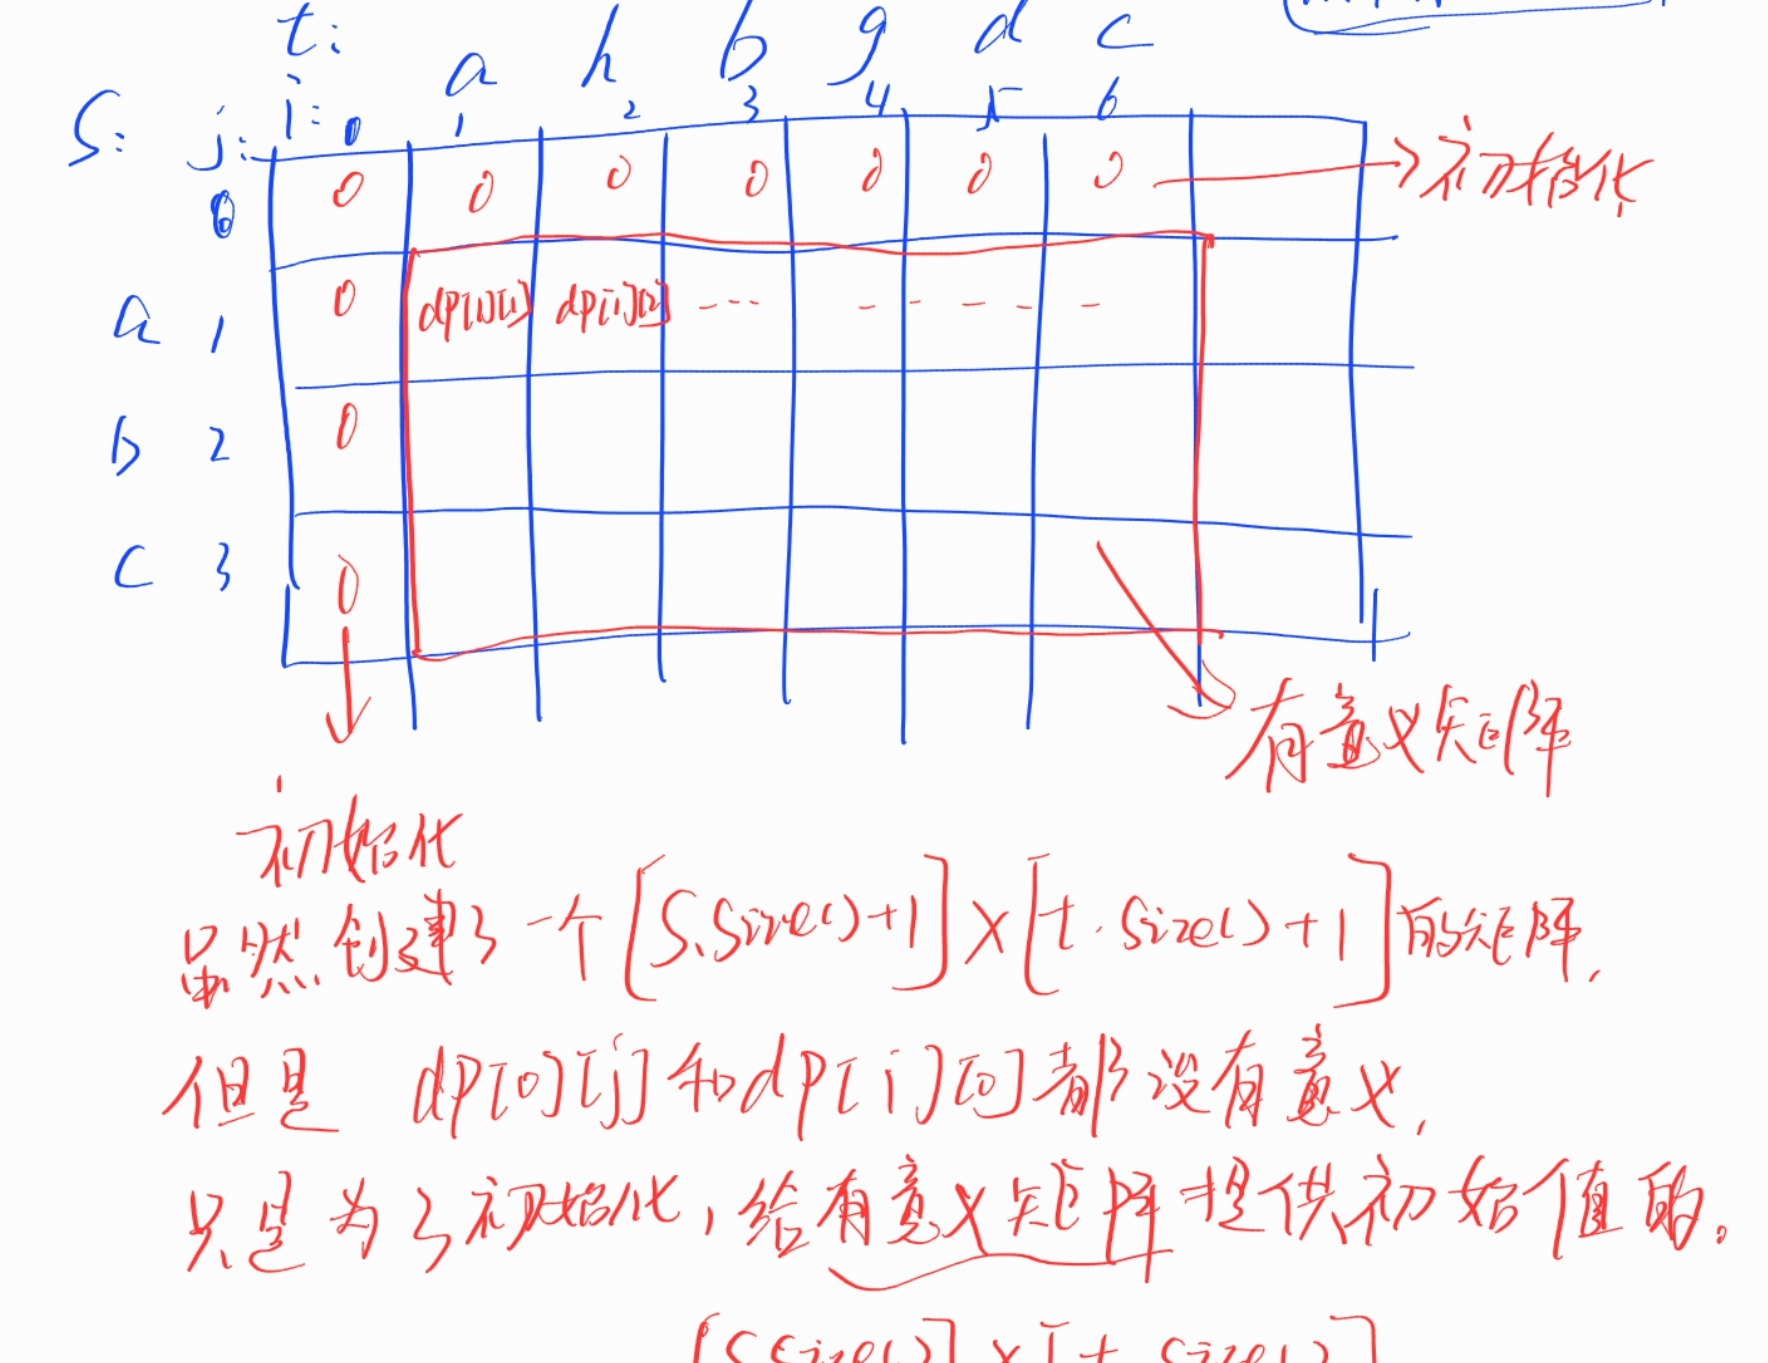 t:
a h b g d c
S: j: i: 0 1 2 3 4 5 6
0 0 0 0 0 0 0 0 → 初始化
a 1 0 dp[1][1] dp[1][2] --- - - - - -
b 2 0
c 3 0
有意义矩阵
初始化
虽然创建了一个[S.size()+1]×[t.size()+1]的矩阵,
但是 dp[0][j]和dp[i][0]都没有意义,
只是为了初始化,给有意义矩阵提供初始值的。
[S.size()]×[t.size()]